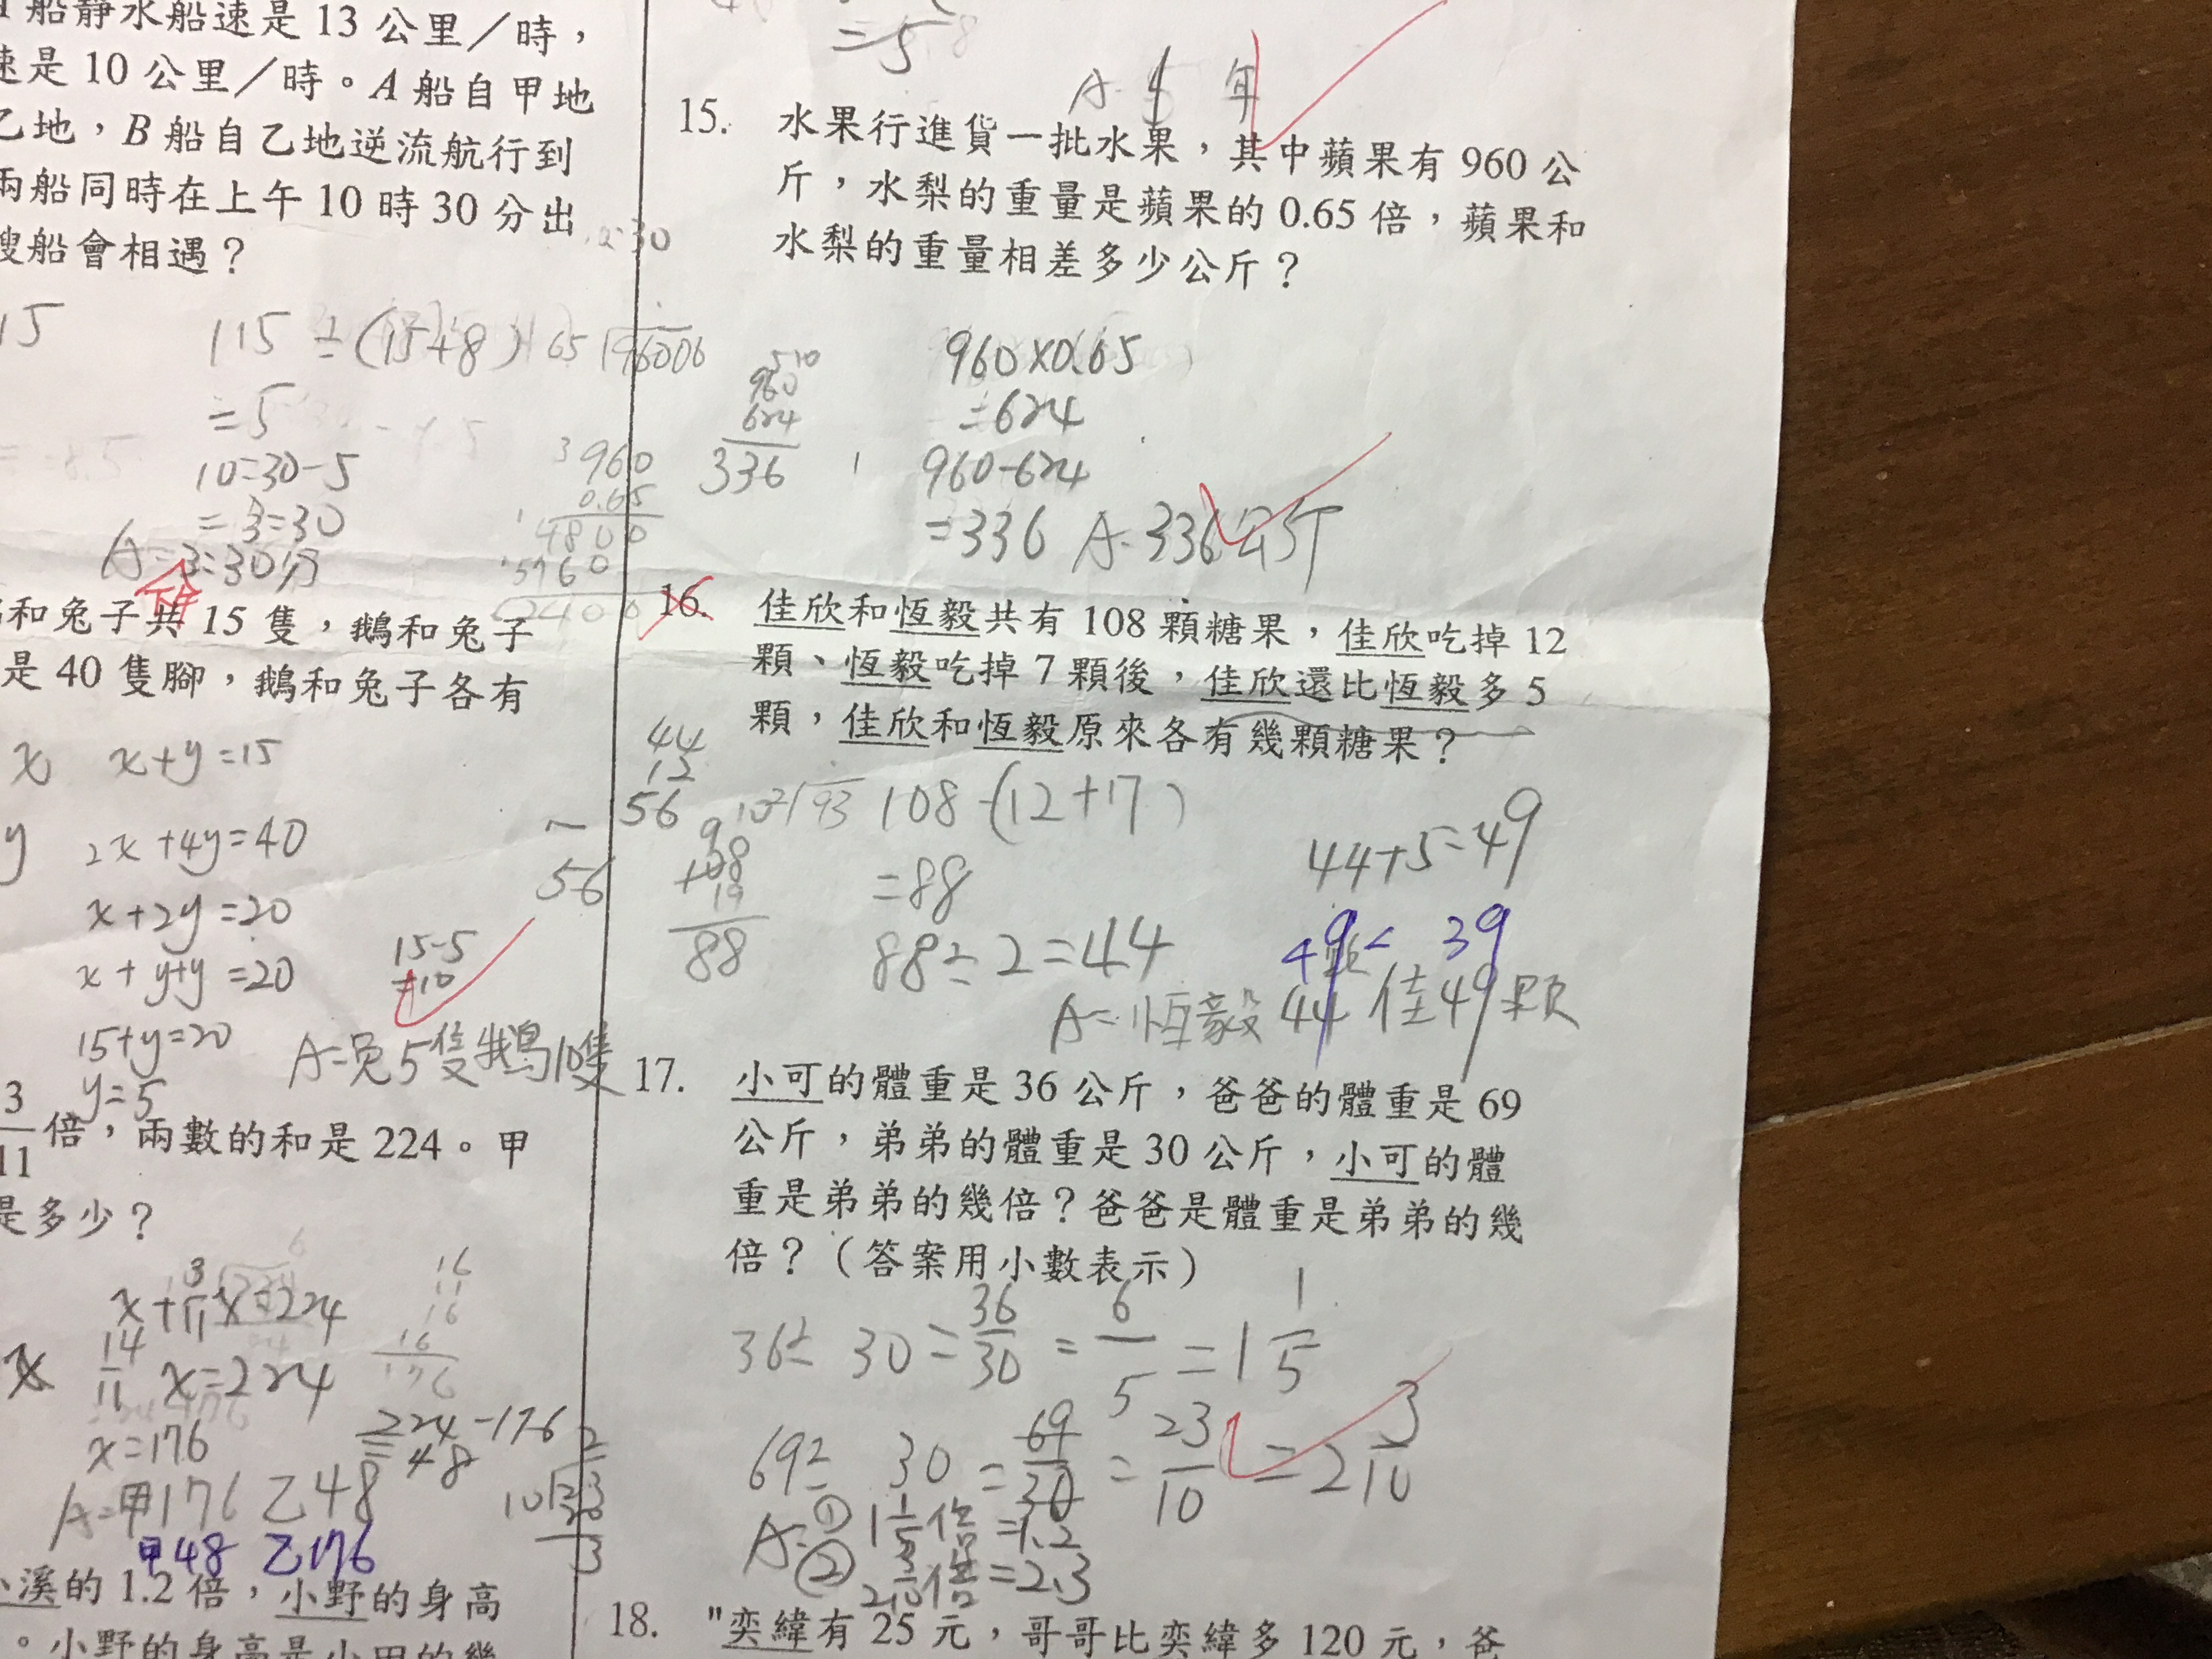 船靜水船速是 13 公里／時，
速是 10 公里／時。A 船自甲地
乙地，B 船自乙地逆流航行到
兩船同時在上午 10 時 30 分出
艘船會相遇？
15
115÷(15+8)
=5
10:30-5
=3:30
A=3:30分
和兔子共 15 隻，鵝和兔子
是 40 隻腳，鵝和兔子各有
x
x+y=15
y
2x+4y=40
x+2y=20
x+y+y=20
15+y=20
y=5
15-5
=10
A=兔5隻鵝10隻
3/11 倍，兩數的和是 224。甲
是多少？
x+3/11x=224
14/11 x=224
x=176
224-176
=48
A=甲176 乙48
甲48 乙176
溪的 1.2 倍，小野的身高
=5
A. 年
15. 水果行進貨一批水果，其中蘋果有 960 公
斤，水梨的重量是蘋果的 0.65 倍，蘋果和
水梨的重量相差多少公斤？
960
624
336
960×0.65
=624
960-624
=336 A.336公斤
960
0.65
4800
5760
16. 佳欣和恆毅共有 108 顆糖果，佳欣吃掉 12
顆、恆毅吃掉 7 顆後，佳欣還比恆毅多 5
顆，佳欣和恆毅原來各有幾顆糖果？
44
12
56
56
108-(12+17)
=88
88÷2=44
19
88
44+5=49
49 39
A=恆毅44 佳49顆
17. 小可的體重是 36 公斤，爸爸的體重是 69
公斤，弟弟的體重是 30 公斤，小可的體
重是弟弟的幾倍？爸爸是體重是弟弟的幾
倍？（答案用小數表示）
36÷30=36/30=6/5=1 1/5
69÷30=69/30=23/10=2 3/10
A=① 1 1/5倍=1.2
② 2 3/10倍=2.3
18. "奕緯有 25 元，哥哥比奕緯多 120 元，爸